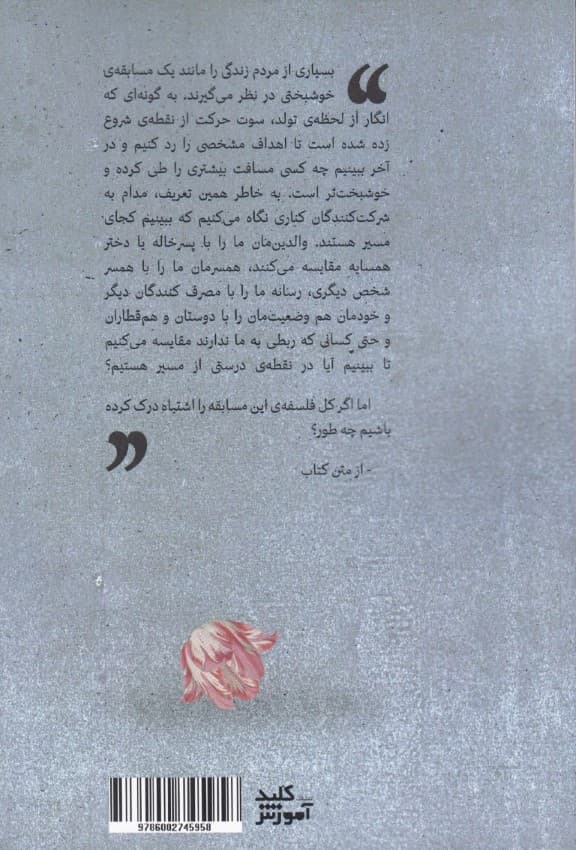 بسیاری از مردم زندگی را مانند یک مسابقه‌ی
خوشبختی در نظر می‌گیرند. به گونه‌ای که
انگار از لحظه‌ی تولد، سوت حرکت از نقطه‌ی شروع
زده شده است تا اهداف مشخصی را رد کنیم و در
آخر ببینیم چه کسی مسافت بیشتری را طی کرده و
خوشبخت‌تر است. به خاطر همین تعریف، مدام به
شرکت‌کنندگان کناری نگاه می‌کنیم که ببینیم کجای
مسیر هستند. والدین‌مان ما را با پسرخاله یا دختر
همسایه مقایسه می‌کنند، همسرمان ما را با همسر
شخص دیگری، رسانه ما را با مصرف کنندگان دیگر
و خودمان هم وضعیت‌مان را با دوستان و هم‌قطاران
و حتی کسانی که ربطی به ما ندارند مقایسه می‌کنیم
تا ببینیم آیا در نقطه‌ی درستی از مسیر هستیم؟
اما اگر کل فلسفه‌ی این مسابقه را اشتباه درک کرده
باشیم چه طور؟
- از متن کتاب
کلید
آموزش
9786002745958